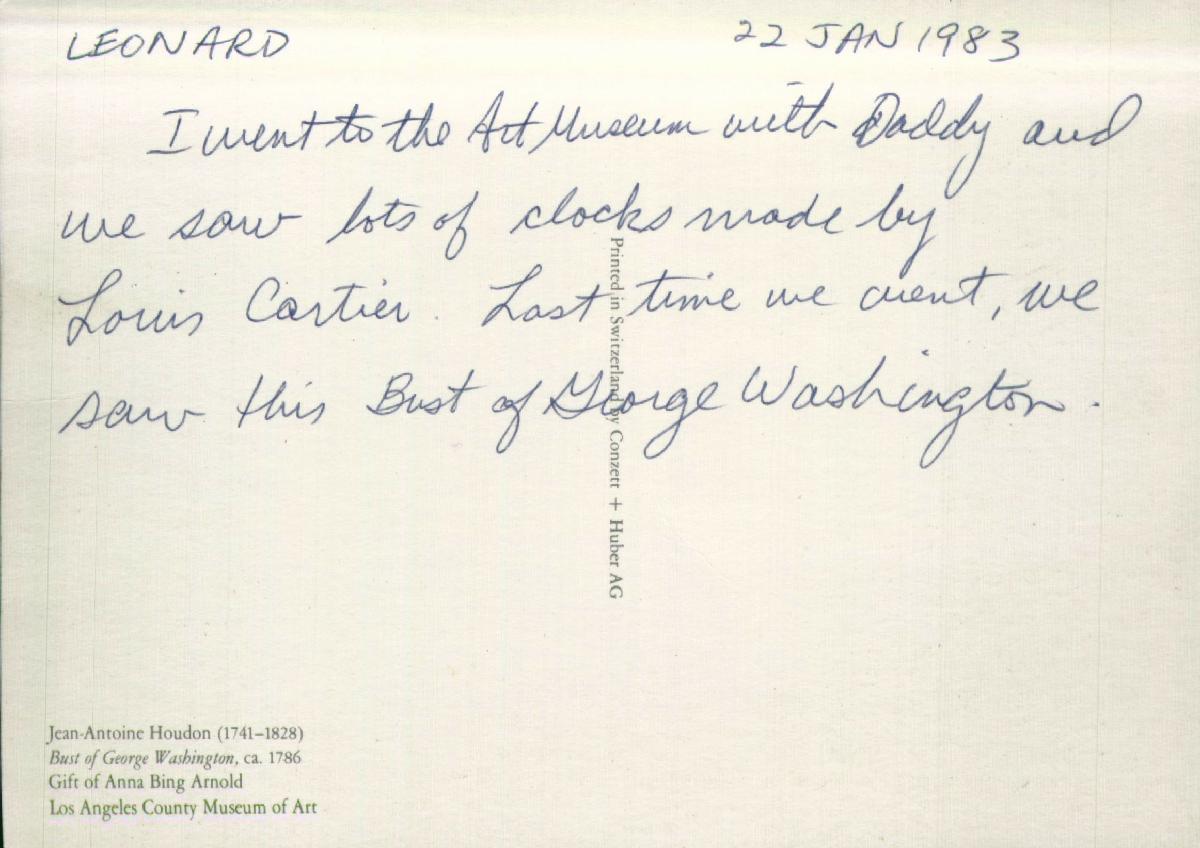 LEONARD 22 JAN 1983
I went to the Art Museum with Daddy and
we saw lots of clocks made by
Louis Cartier. Last time we went, we
saw this Bust of George Washington.
Printed in Switzerland by Conzett + Huber AG
Jean-Antoine Houdon (1741–1828)
Bust of George Washington, ca. 1786
Gift of Anna Bing Arnold
Los Angeles County Museum of Art